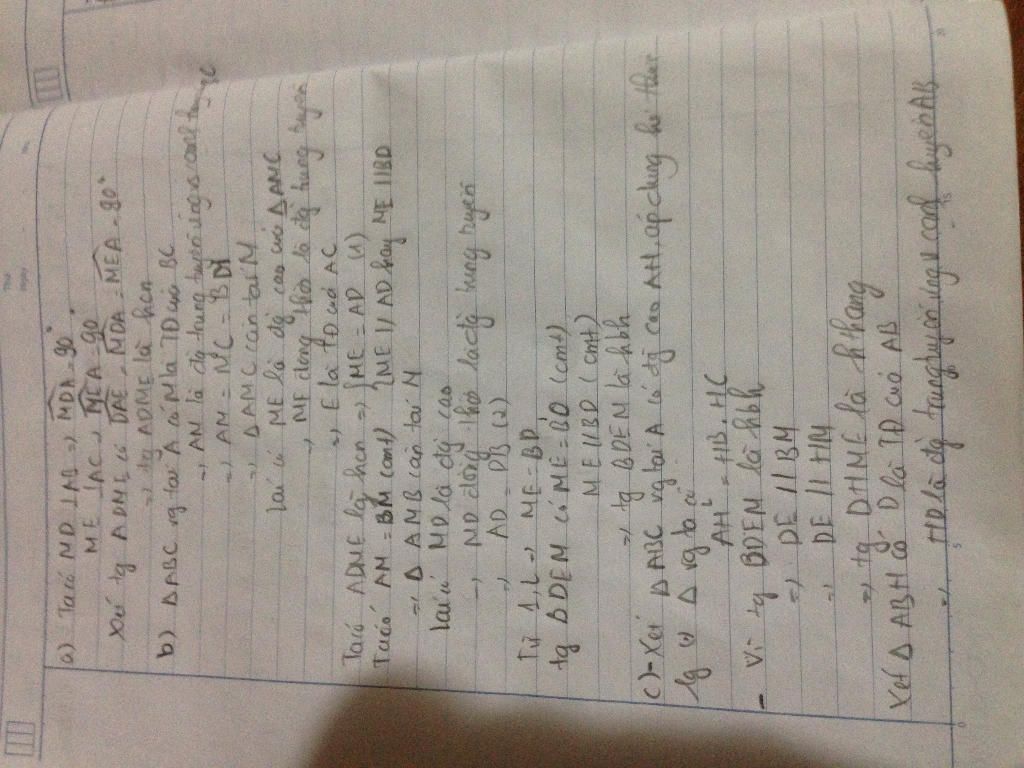 a) Ta có MD ⊥ AB => MDA = 90°
ME ⊥ AC => MEA = 90°
Xét tg ADME có DAE = MDA = MEA = 90°
=> tg ADME là hcn
b) ΔABC vg tại A có M là TD của BC
=> AM là đg trung tuyến ứng vs cạnh BC
=> AM = MC = BM
=> ΔAMC cân tại M
lại có ME là đg cao của ΔAMC
=> ME đồng thời là đg trung tuyến
=> E là TD của AC
Ta có ADME là hcn => { ME = AD (1)
Ta có AM = BM (cmt) { ME // AD hay ME // BD
=> Δ AMB cân tại M
lại có MD là đg cao
=> MD đồng thời là đg trung tuyến
=> AD = DB (2)
Từ 1, 2 => ME = BD
tg BDEM có ME = BD (cmt)
ME // BD (cmt)
=> tg BDEM là hbh
c) - Xét ΔABC vg tại A có đg cao AH, áp dụng hệ thức
lg Δ vg ta có
AH² = HB . HC
- Vì tg BDEM là hbh
=> DE // BM
=> DE // HM
=> tg DHME là hthang
Xét Δ ABH có D là TD của AB
=> HD là đg trung tuyến ứng v cạnh huyền AB